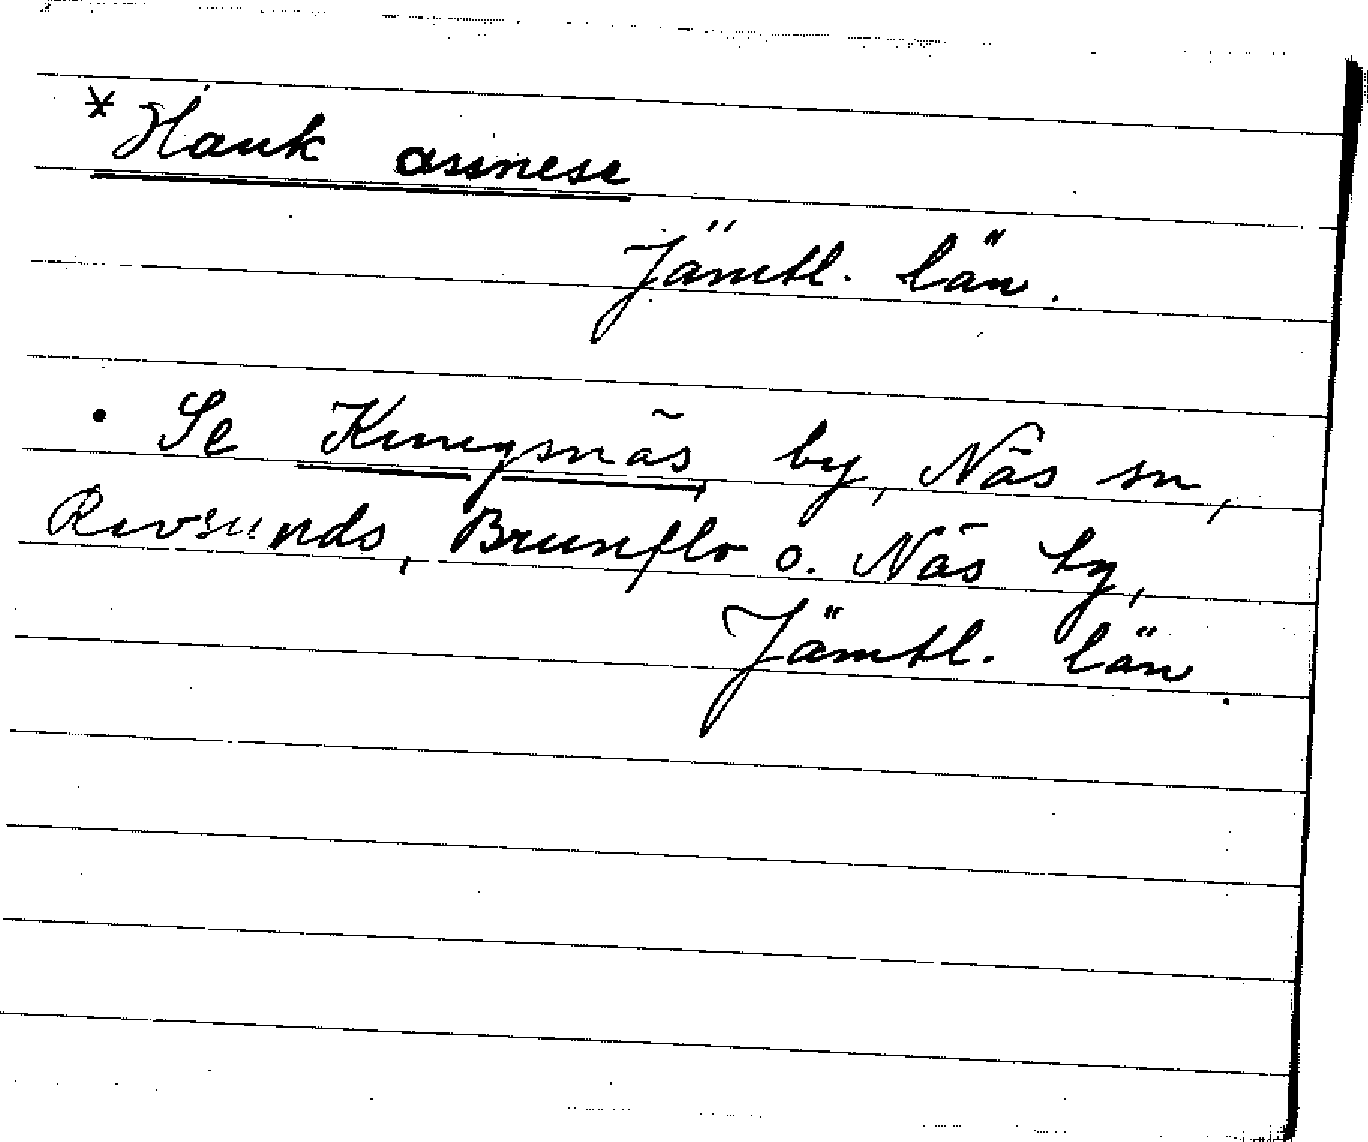 *Hauk asinese
Jämtl. län.
• Se Kungsnäs by, Näs sn,
Revsunds, Brunflo o. Näs tg,
Jämtl. län.